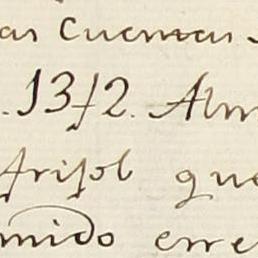 as Cuentas
. 1372. Alm
frisol que
mido erre